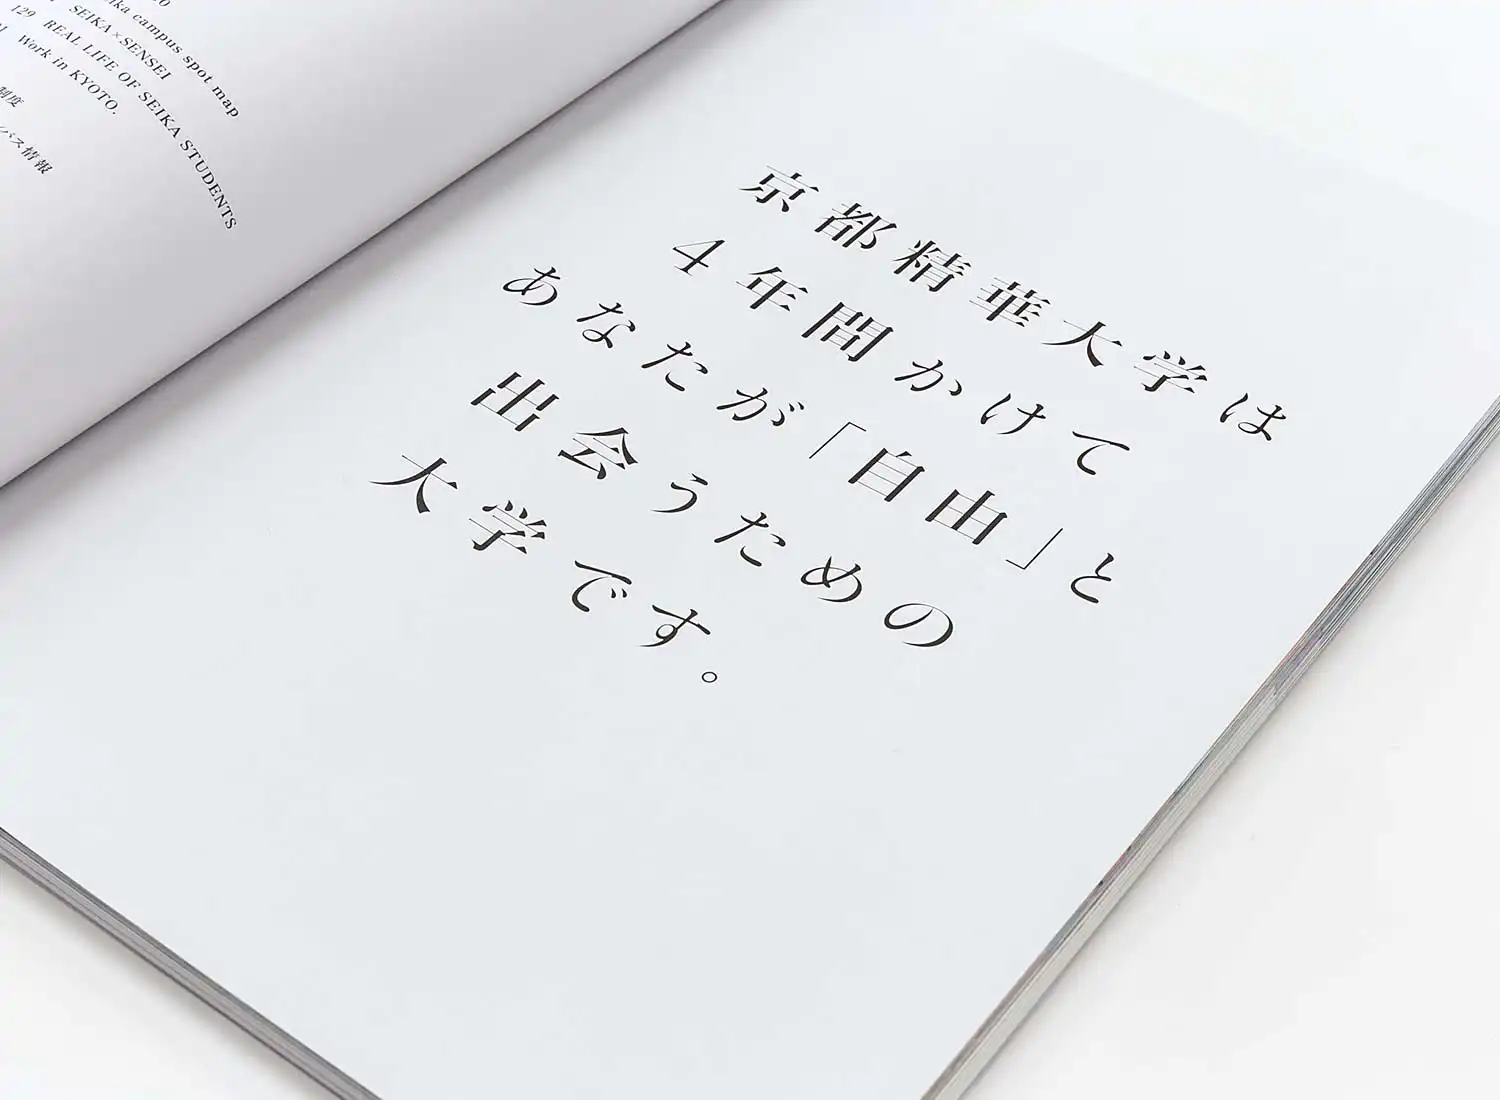 campus spot map
SEIKA×SENSEI
129 REAL LIFE OF SEIKA STUDENTS
Work in KYOTO.
制度
情報
京都精華大学は
4年間かけて
あなたが「自由」と
出会うための
大学です。